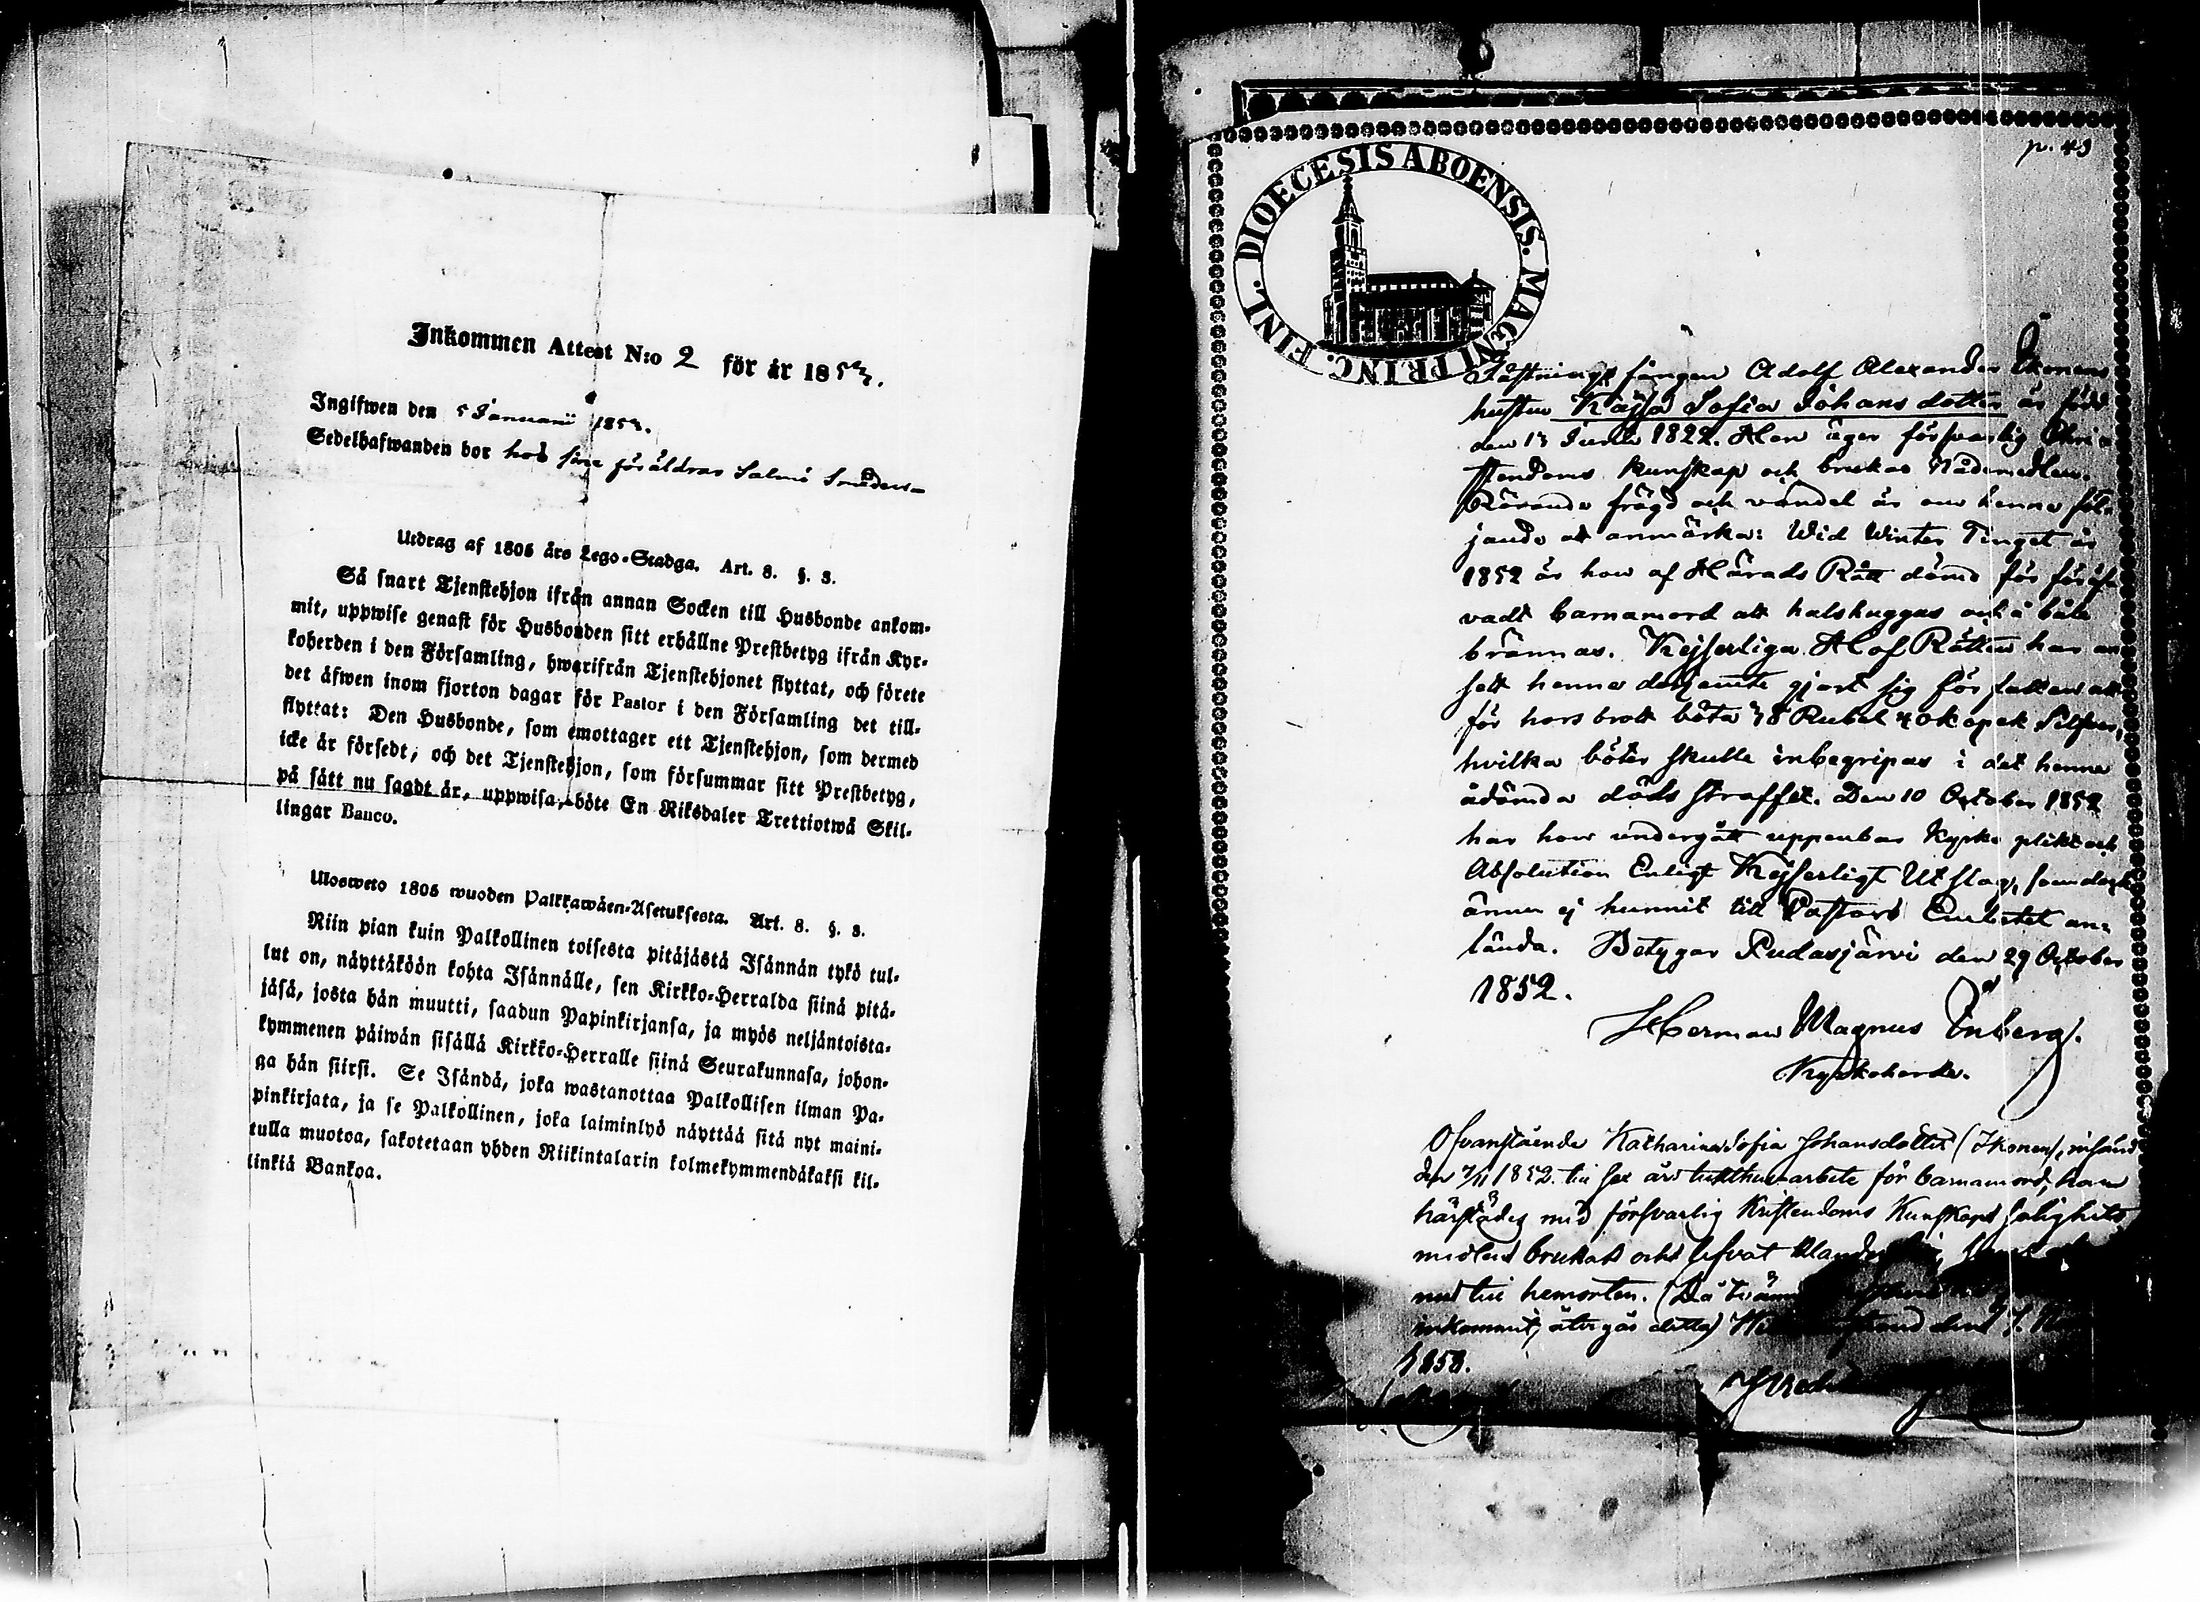 Inkommen Attest N:o 2 för år 1853.
Ingifwen den 5 Januarii 1853.
Sedelhafwanden bor hos sina föräldrar Salmi
Utdrag af 1805 års Lego-Stadga. Art. 8. §. 3.
Så snart Tjenstehjon ifrån annan Socken till Husbonde ankom-
mit, uppwise genast för Husbonden sitt erhållne Prestbetyg ifrån Kyr-
koherden i den Församling, hwarifrån Tjenstehjonet flyttat, och förete
det äfwen inom fjorton dagar för Pastor i den Församling det till-
flyttat: Den Husbonde, som emottager ett Tjenstehjon, som dermed
icke är försedt, och det Tjenstehjon, som försummar sitt Prestbetyg,
på sätt nu sagdt är, uppwisa, böte En Riksdaler Trettiotwå Skil-
lingar Banco.
Ulosweto 1805 wuoden Palkkawäen-Asetuksesta. Art. 8. §. 3.
Niin pian kuin Palkollinen toisesta pitäjästä Isännän tykö tul-
lut on, näyttäköön kohta Isännälle, sen Kirkko-Herralda siinä pitä-
jäsä, josta hän muutti, saadun Papinkirjansa, ja myös neljäntoista-
kymmenen päiwän sisällä Kirkko-Herralle siinä Seurakunnasa, johon-
ga hän siirsi. Se Isändä, joka wastanottaa Palkollisen ilman Pa-
pinkirjata, ja se Palkollinen, joka laiminlyö näyttää sitä nyt maini-
tulla muotoa, sakotetaan yhden Riikintalarin kolmekymmendäkaksi kil-
linkiä Bankoa.
p. 43
DIOECESIS ABOENSIS. MAGNI PRINC. FINL.
Fästnings fången Adolf Alexander Ikonens
hustru Kajsa Sofia Johansdotter är född
den 13 Junii 1822. Hon äger försvarlig Chri-
stendoms kunskap och brukar Nådemedlen.
Rörande frägd och vandel är om henne föl-
jande att anmärka: Wid Winter Tinget år
1852 är hon af Härads Rätt dömd för föröf-
vadt barnamord att halshuggas och i båle
brännas. Kejserliga Hof Rätten har an
sett henne derjemte gjort sig förfallen att
för horsbrott böta 48 Rubel 40 kopek Silfver,
hvilka böter skulle inbegripas i det henne
ådömda dödsstraffet. Den 10 October 1852
har hon undergått uppenbar Kyrko plikt och
Absolution Enligt Kejserligt Utslag, som dock
ännu ej hunnit till Pastors Embetet an-
lända. Betygar Pudasjärvi den 29 October
1852.
Herman Magnus Önberg.
Kyrkoherde.
Ofvanstående Katharina Sofia Johansdotter (Ikonen), insänd
den 7/11 1852 till sex års tukthusarbete för barnamord, har
härstädes med försvarlig Kristendoms Kunskap salighets
medlen brukat och lefvat
nu till hemorten. (Då
inkommit, återgår detta) den 7.
1858.